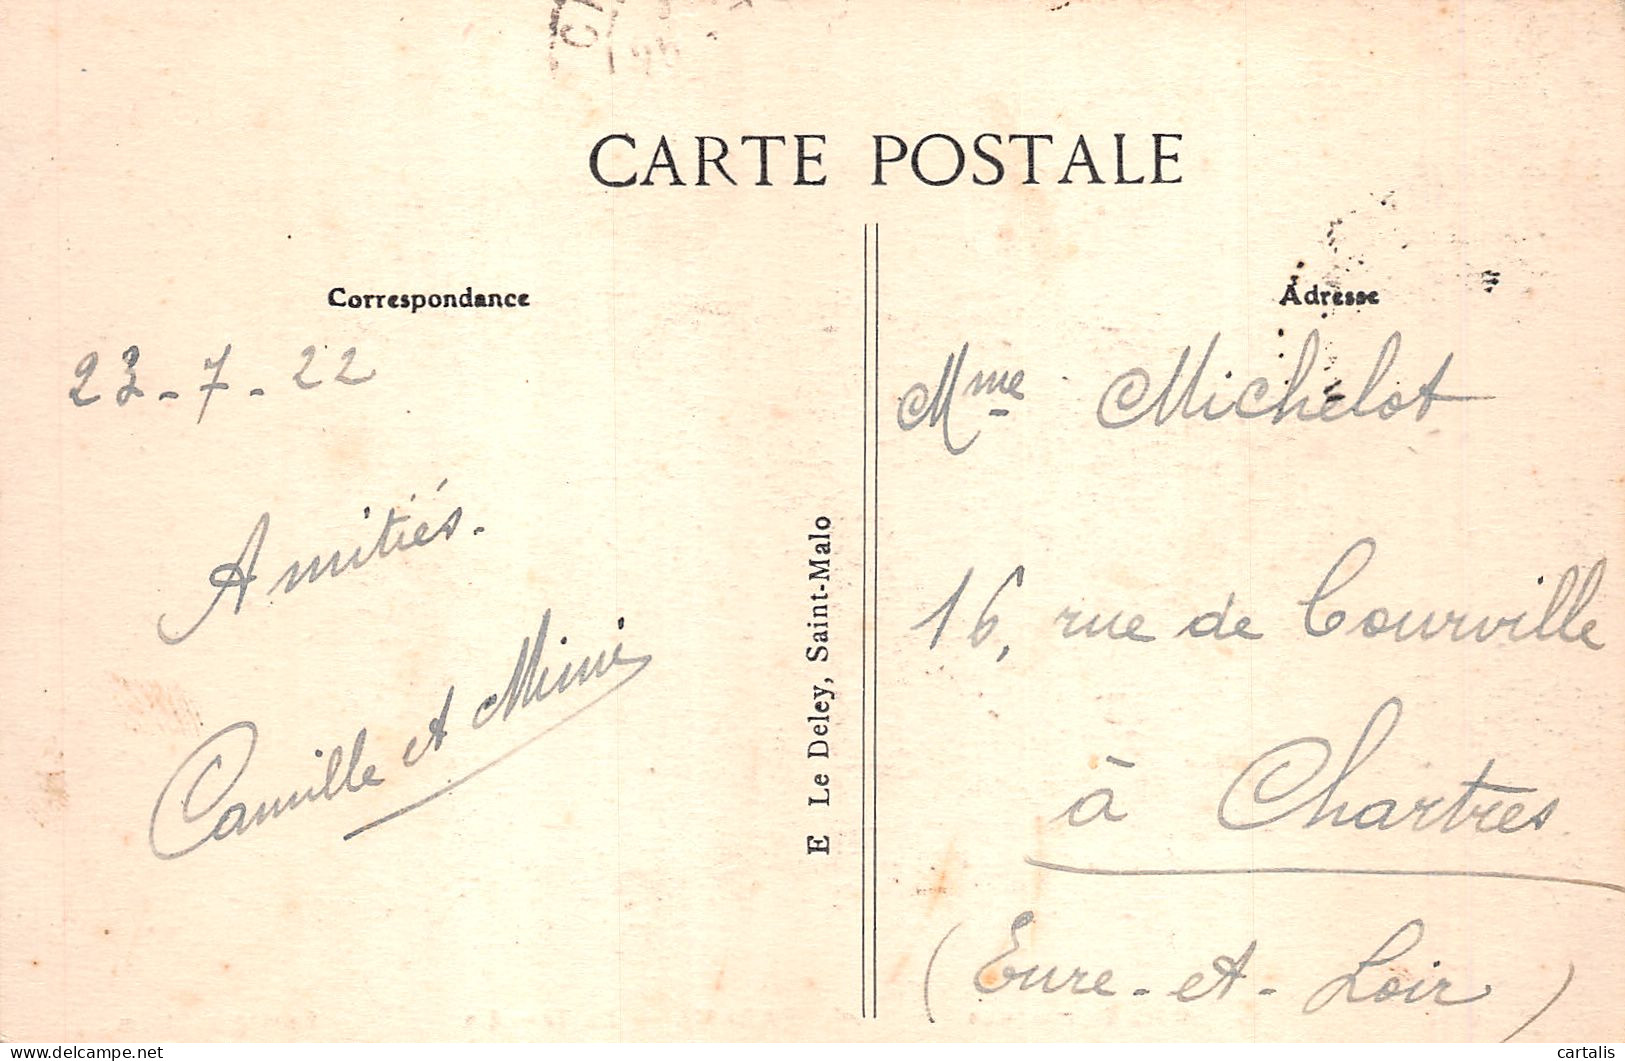 CARTE POSTALE
Correspondance
23-7-22
Amitiés.
Camille et Mimi
E Le Deley, Saint-Malo
Adresse
Mme Michelot
16, rue de Courville
à Chartres
(Eure-et-Loir)
delcampe.net
cartalis